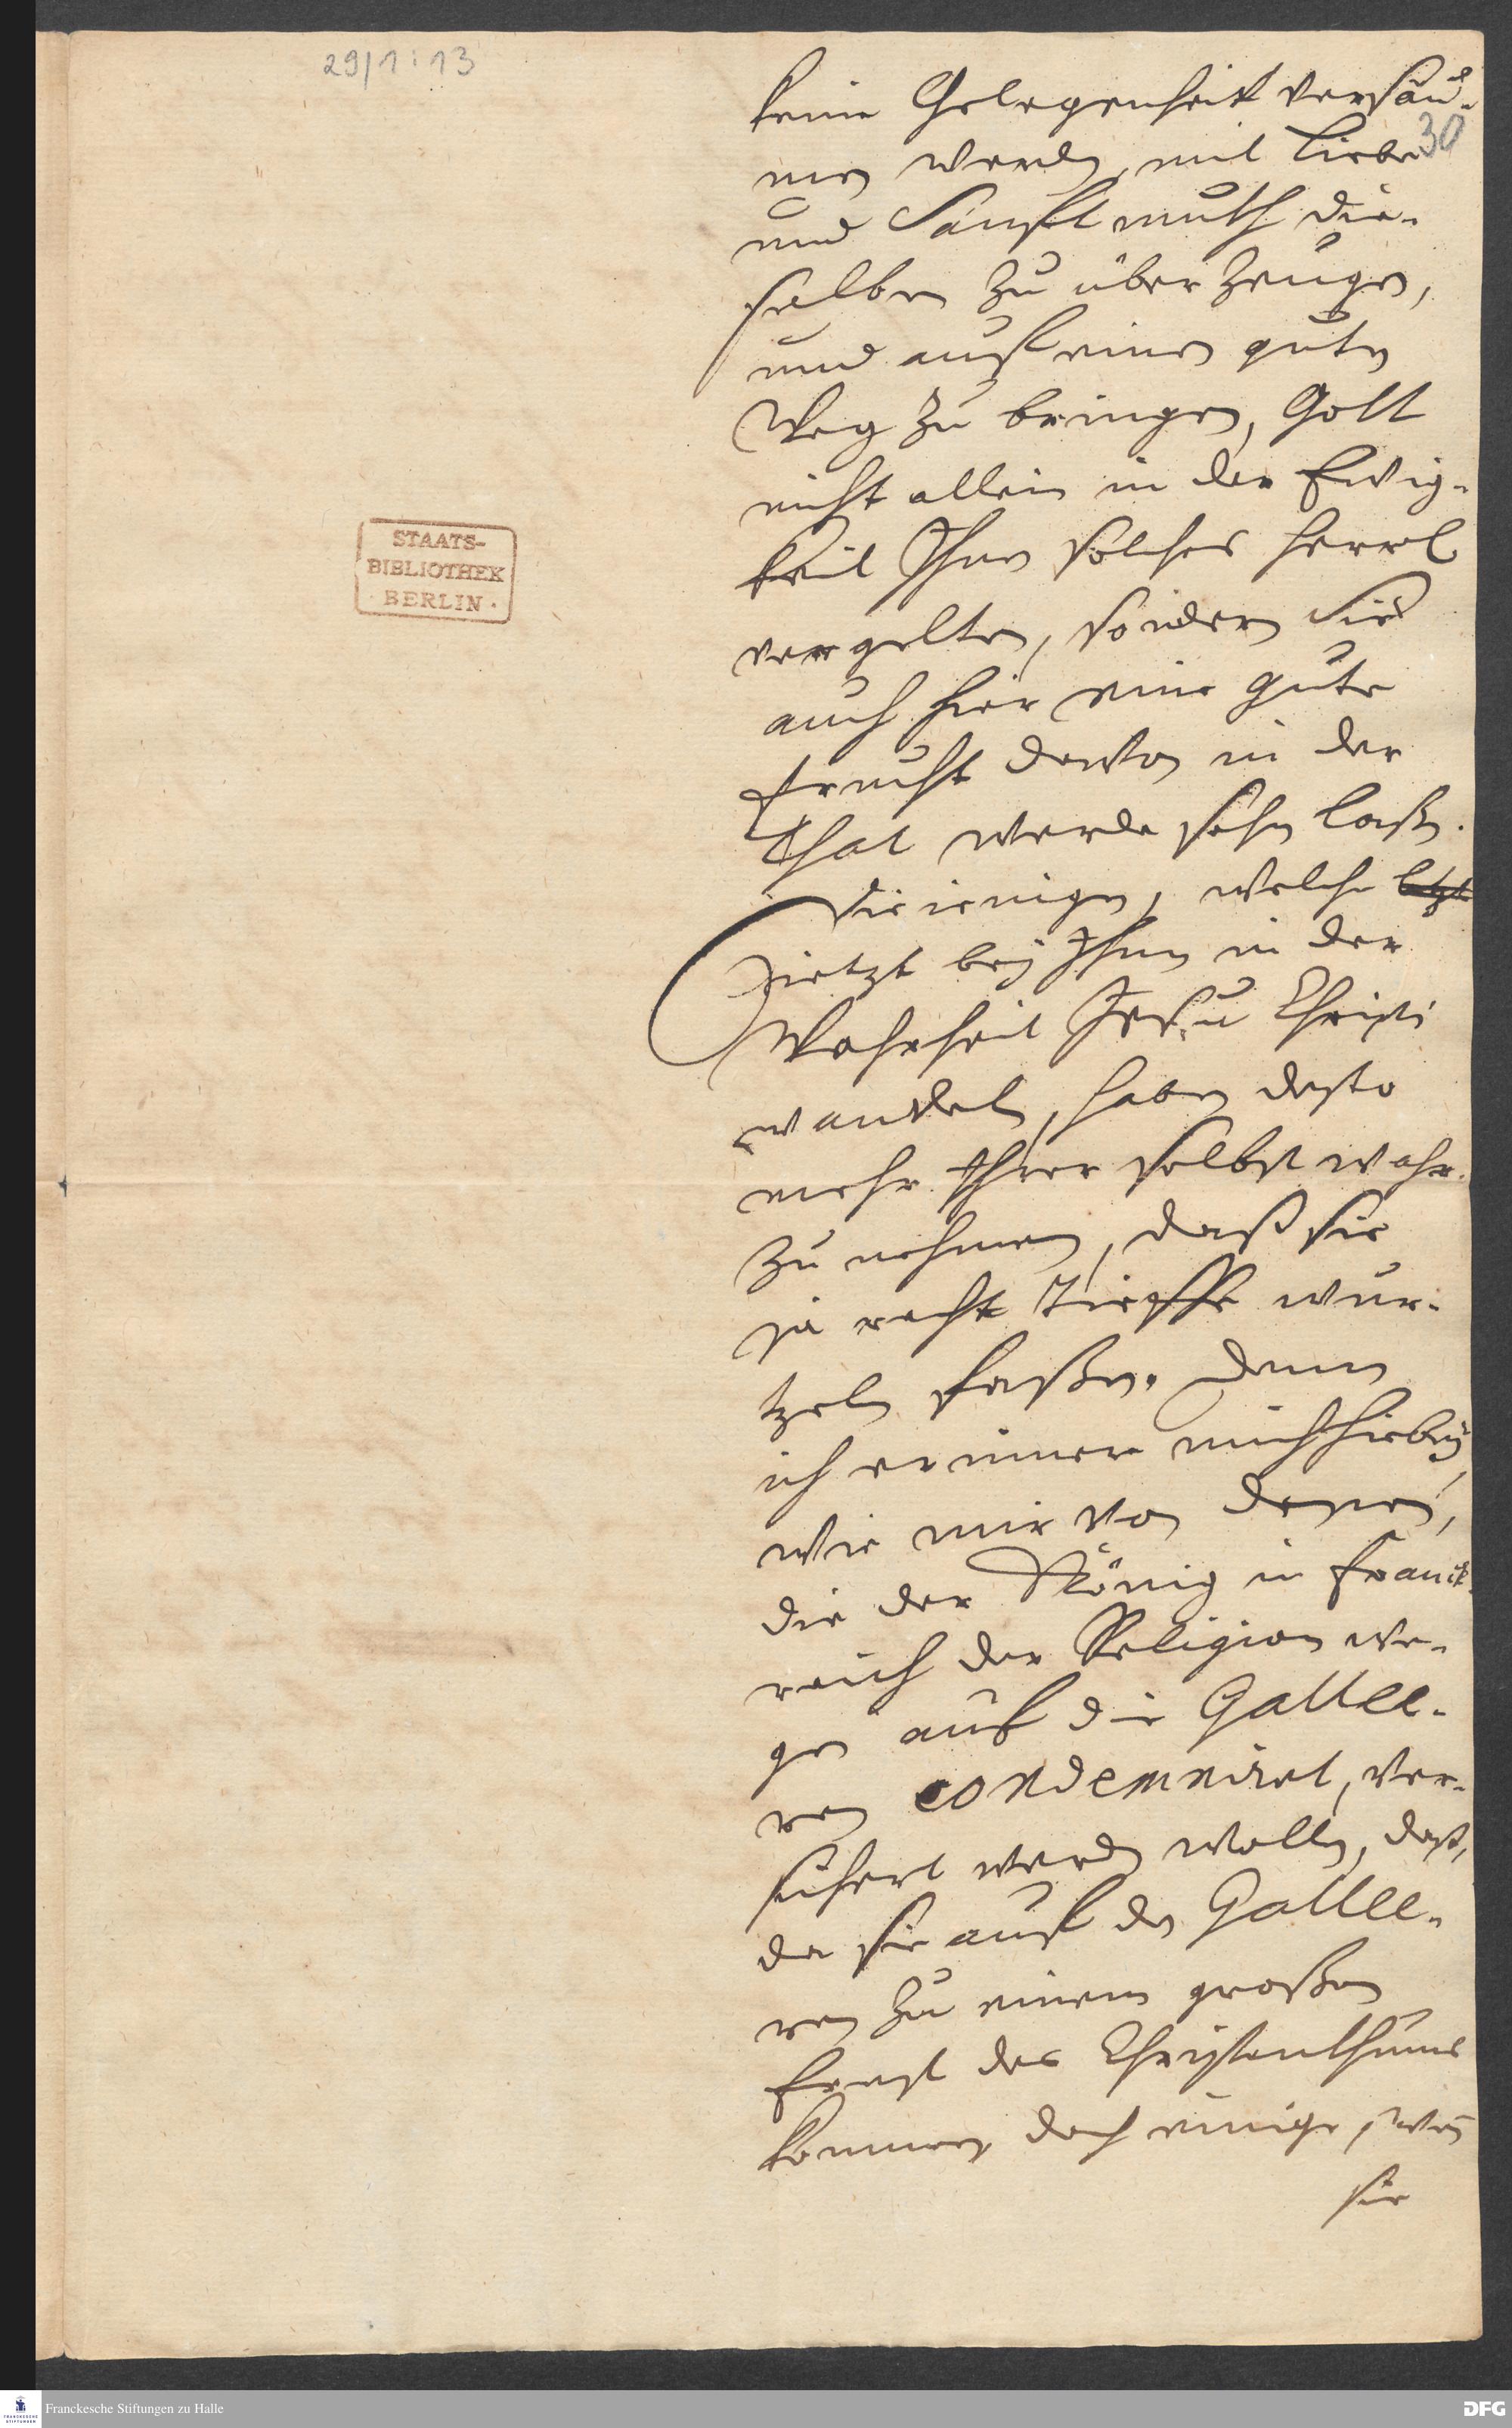 29/1:13
30
keine Gelegenheit versäu-
men werden, mit Liebe
und Sanfftmuth die-
selben zu überzeugen,
und auf einen guten
Weg zu bringen, Gott
nicht allein in der Ewig-
keit Ihnen solches herrl.
vergelten, sondern Sie
auch hier eine gute
Frucht davon in der
That werde sehen laßen.
Diejenigen, welche letzt
jetzt bey Ihnen in der
Wahrheit Jesu Christi
wandeln, haben desto
mehr Ihrer selbst wahr-
zu nehmen, daß sie
ja recht tieffe wur-
tzeln faßen. Denn
ich erinnere mich hiebey,
wie mir von denen,
die der König in Franck-
reich der Religion we-
gen auf die Gallee-
ren condemniret, ver-
sichert werden wollen, daß,
da sie auf den Gallee-
ren zu einem großen
Ernst des Christenthums
kommen, doch einige, wen
sie
STAATS-
BIBLIOTHEK
BERLIN.
Franckesche Stiftungen zu Halle
DFG